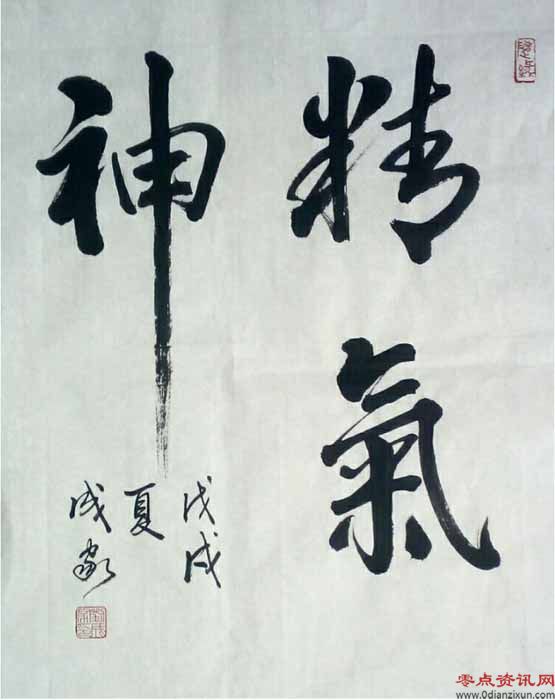 精氣
神
戊戌
夏
成家
零点资讯网
www.0dianzixun.com